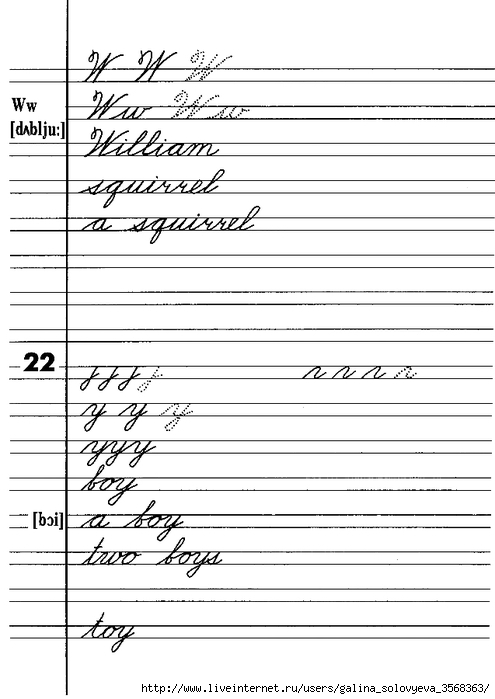 W W W
Ww Ww Ww
[dʌblju:] William
squirrel
a squirrel
22
y y y
yyy
boy
[bɔi] a boy
two boys
toy
http://www.liveinternet.ru/users/galina_solovyeva_3568363/